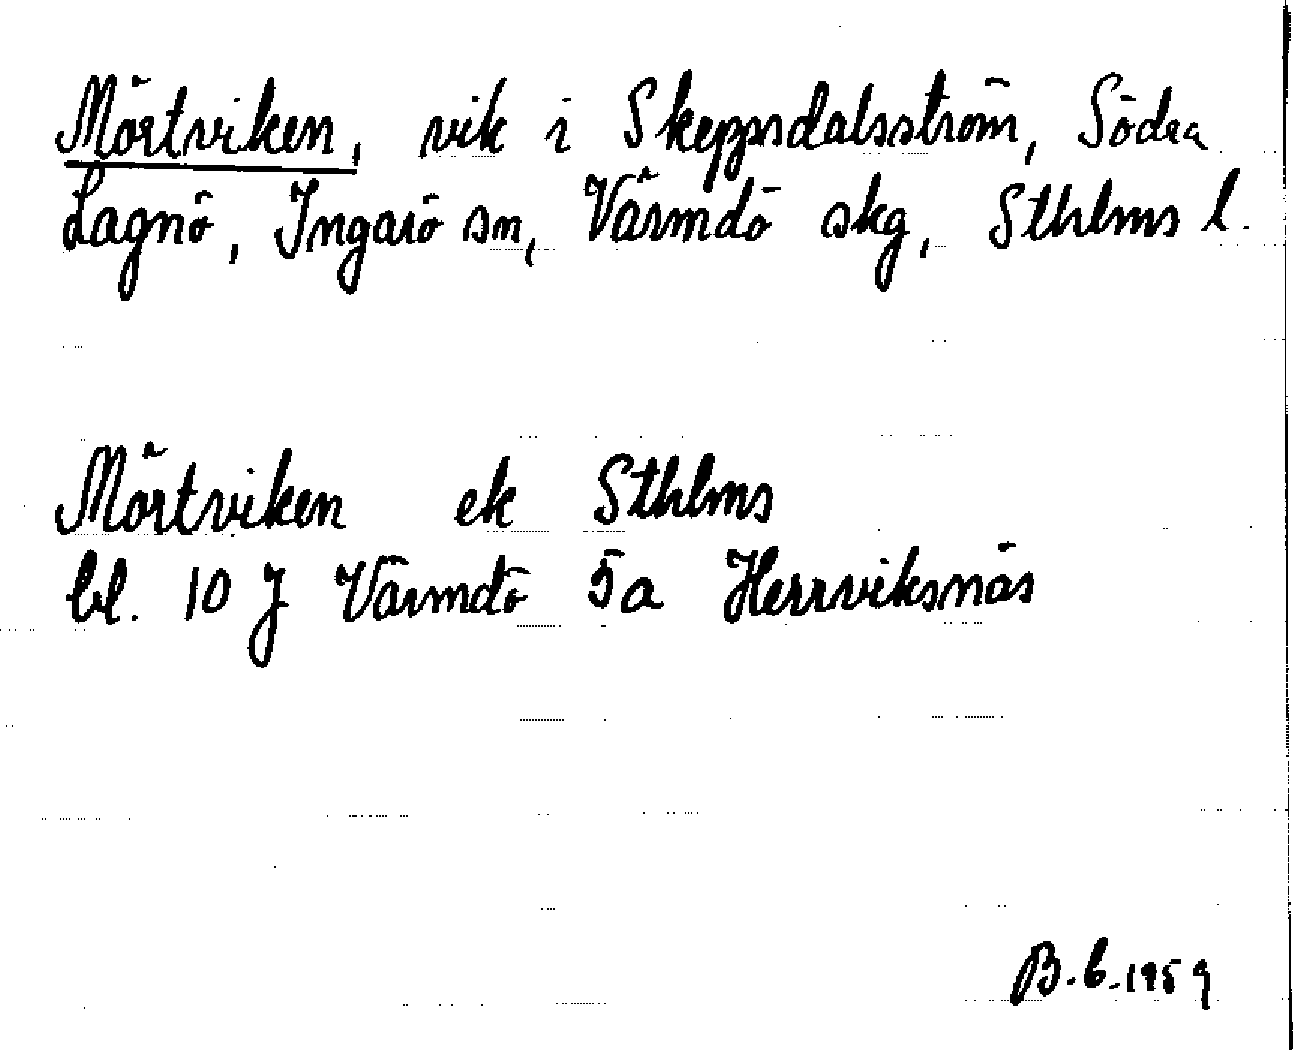 Mörtviken, vik i Skeppsdalsström, Södra
Lagnö, Ingarö sn, Värmdö skg, Sthlms l.
Mörtviken ek Sthlms
bl. 10 J Värmdö 5a Herrviksnäs
B.G.1959